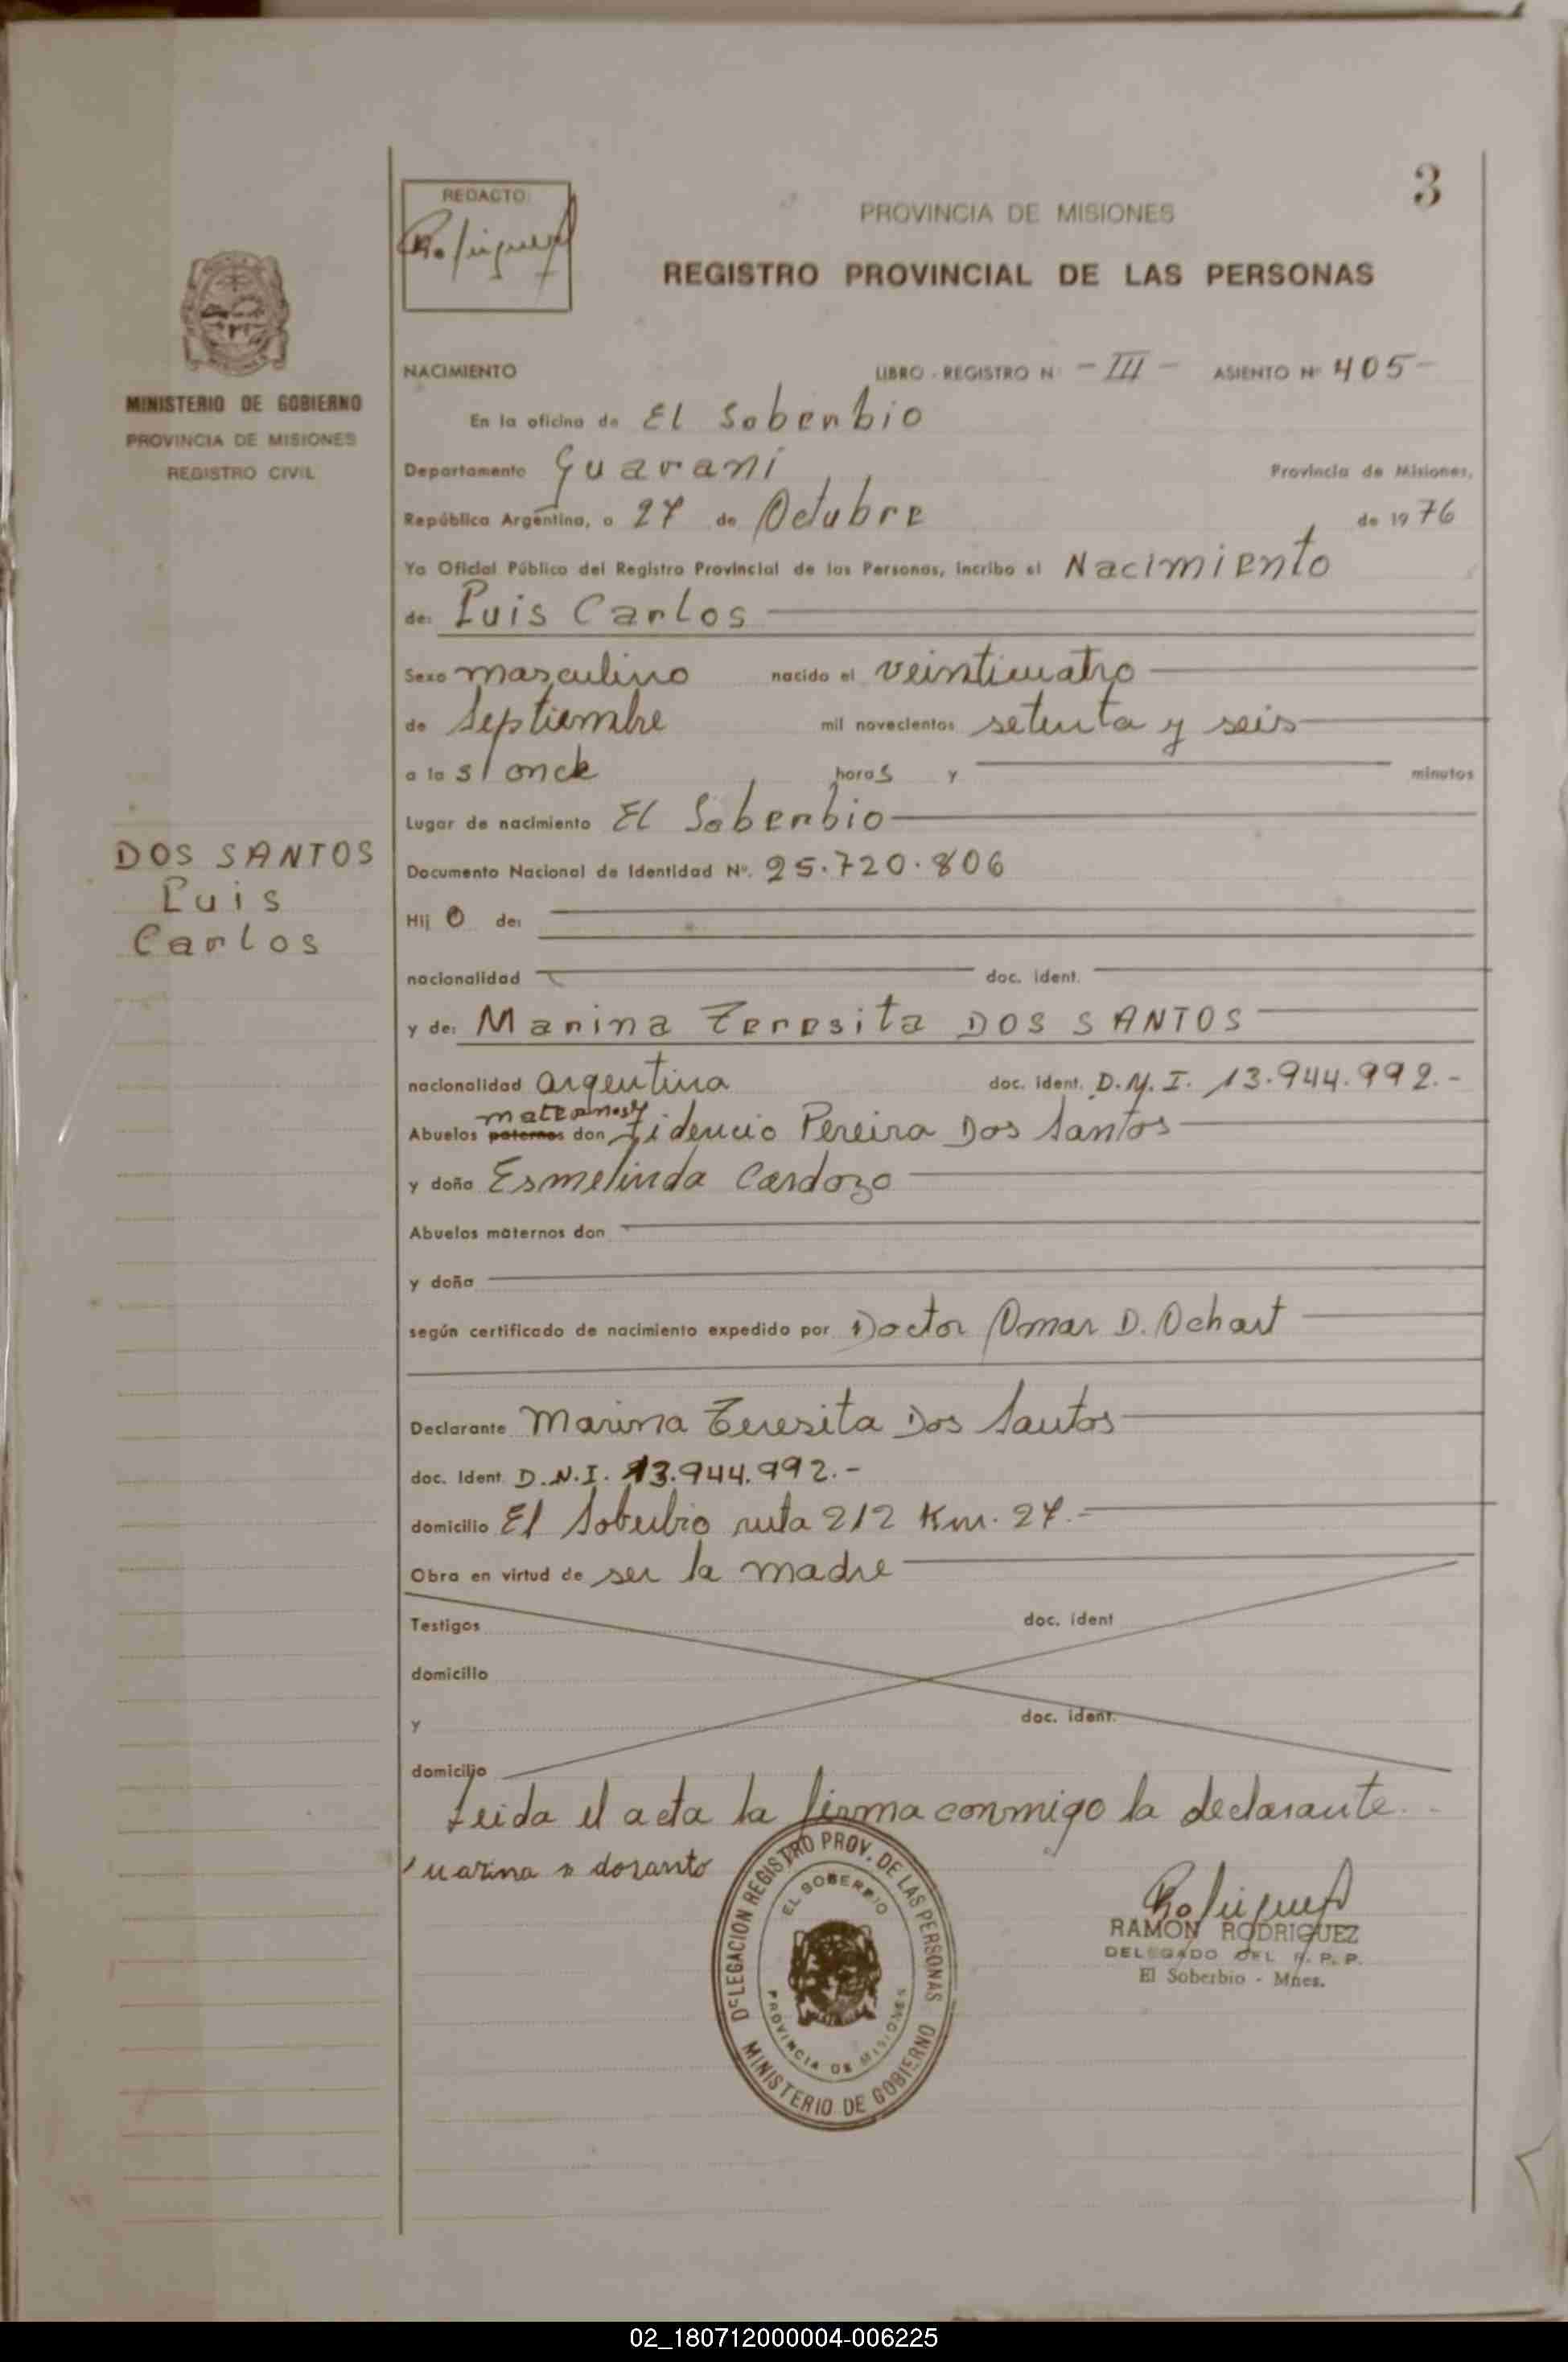 3
REDACTO:
Rodriguez
PROVINCIA DE MISIONES
REGISTRO PROVINCIAL DE LAS PERSONAS
MINISTERIO DE GOBIERNO
PROVINCIA DE MISIONES
REGISTRO CIVIL
NACIMIENTO LIBRO - REGISTRO N: - III - ASIENTO Nº 405 -
En la oficina de El Soberbio
Departamento Guaraní Provincia de Misiones,
República Argentina, a 27 de Octubre de 1976
Yo Oficial Público del Registro Provincial de las Personas, incribo el Nacimiento
de: Luis Carlos
Sexo masculino nacido el veinticuatro
de septiembre mil novecientos setenta y seis
a las once horas y minutos
Lugar de nacimiento El Soberbio
DOS SANTOS
Luis
Carlos
Documento Nacional de Identidad Nº. 25.720.806
Hijo de:
nacionalidad doc. ident.
y de: Marina Teresita DOS SANTOS
nacionalidad argentina doc. ident. D.N.I. 13.944.992.-
maternos
Abuelos paternos don Fidencio Pereira Dos Santos
y doña Esmelinda Cardozo
Abuelos maternos don
y doña
según certificado de nacimiento expedido por Doctor Omar D. Ochart
Declarante Marina Teresita Dos Santos
doc. Ident. D.N.I. 13.944.992.-
domicilio El Soberbio ruta 212 Km. 27.-
Obra en virtud de ser la madre
Testigos doc. ident
domicilio
y doc. ident.
domicilio
Leida el acta la firma conmigo la declarante.
marina dosanto
DELEGACION REGISTRO PROV. DE LAS PERSONAS
EL SOBERBIO
PROVINCIA DE MISIONES
MINISTERIO DE GOBIERNO
Rodriguez
RAMON RODRIGUEZ
DELEGADO DEL R. P. P.
El Soberbio - Mnes.
02_180712000004-006225